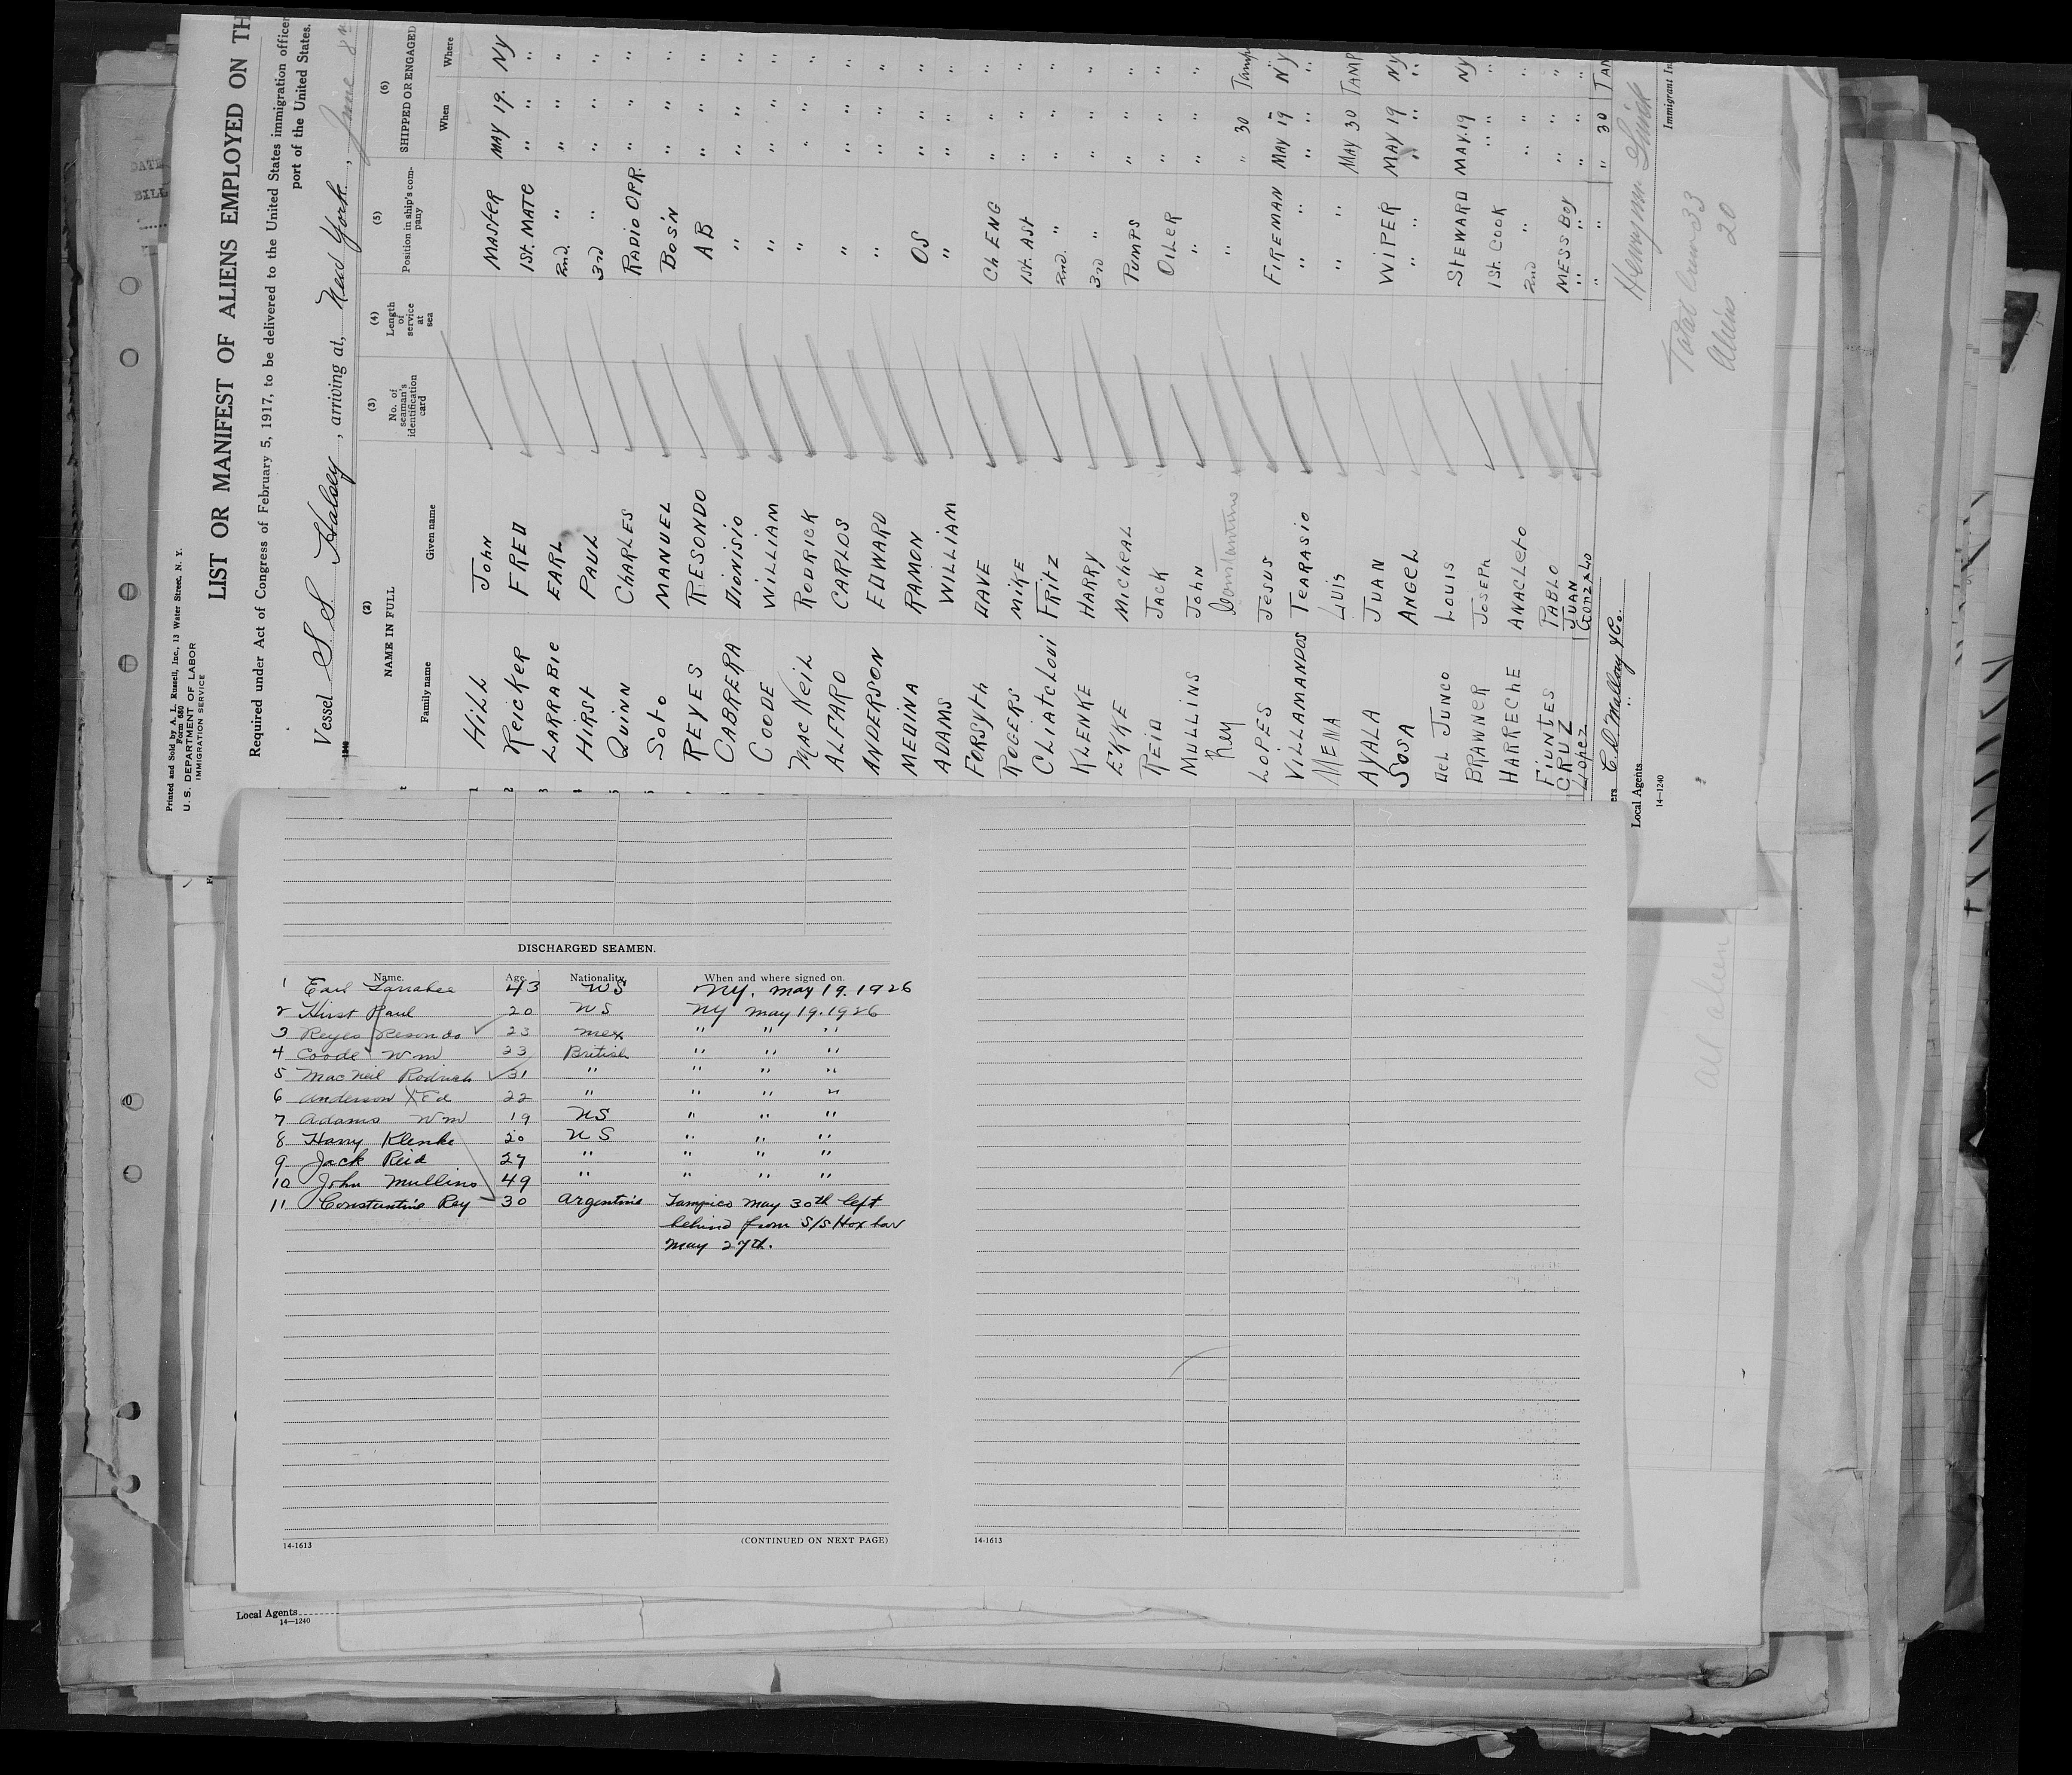 Printed and Sold by A. L. Russell, Inc., 13 Water Street, N. Y.
Form 680
U. S. DEPARTMENT OF LABOR
IMMIGRATION SERVICE
LIST OR MANIFEST OF ALIENS EMPLOYED ON TH
Required under Act of Congress of February 5, 1917, to be delivered to the United States immigration officer
port of the United States.
Vessel S S Halsey, arriving at, New York, June 8th
(2) (3) (4) (5) (6)
NAME IN FULL No. of seaman's identification card Length of service at sea Position in ship's company SHIPPED OR ENGAGED
Family name Given name When Where
1 HILL JOHN MASTER MAY 19. NY
2 REICKER FRED 1ST. MATE " " "
3 LARRABIE EARL 2nd " " " "
HIRST PAUL 3rd " " " "
QUINN CHARLES RADIO OPR. " " "
SOTO MANUEL BOSN " " "
REYES RESONDO AB " " "
CABRERA DIONISIO " " " "
COODE WILLIAM " " " "
MAC NEIL RODRICK " " " "
ALFARO CARLOS " " " "
ANDERSON EDWARD " " " "
MEDINA RAMON OS " " "
ADAMS WILLIAM " " " "
FORSYTH DAVE CH ENG " " "
ROGERS MIKE 1ST. AST " " "
CLIATCLOUI FRITZ 2nd " " " "
KLENKE HARRY 3rd " " " "
EKKE MICHEAL PUMPS " " "
REID JACK OILER " " "
MULLINS JOHN " " " "
Rey Constantino " " 30 Tamp
LOPES JESUS FIREMAN MAY 19 NY
VILLAMANDOS TEARASIO " " " "
MENA LUIS " MAY 30 TAMP
AYALA JUAN WIPER MAY 19 NY
SOSA ANGEL " " " "
DEL JUNCO LOUIS STEWARD MAY.19 NY
BRAWNER JOSEPH 1ST. COOK " " "
HARRECHE ANACLETO 2nd " " " "
FIUNTES PABLO MESS BOY " " "
CRUZ JUAN " " " "
LOPEZ GONZALO " " 30 TAM
ers C. D. Mallory & Co.
Local Agents "
14—1240
Immigrant In
Total Crew 33
Aliens 20
DISCHARGED SEAMEN.
Name. Age. Nationality. When and where signed on.
1 Earl Larrabee 43 US NY. May 19. 1926
2 Hirst Paul 20 US NY May 19. 1926
3 Reyes Resondo 23 Mex " " "
4 Coode Wm 23 British " " "
5 MacNeil Rodrick 31 " " " "
6 Anderson Ed 22 " " " "
7 Adams Wm 19 US " " "
8 Harry Klenke 20 US " " "
9 Jack Reid 27 " " " "
10 John Mullins 49 " " " "
11 Constantino Rey 30 Argentine Tampico May 30th left
behind from S/S Hoxbar
May 27th.
14-1613 (CONTINUED ON NEXT PAGE)
14-1613
All alien
Local Agents
14—1240